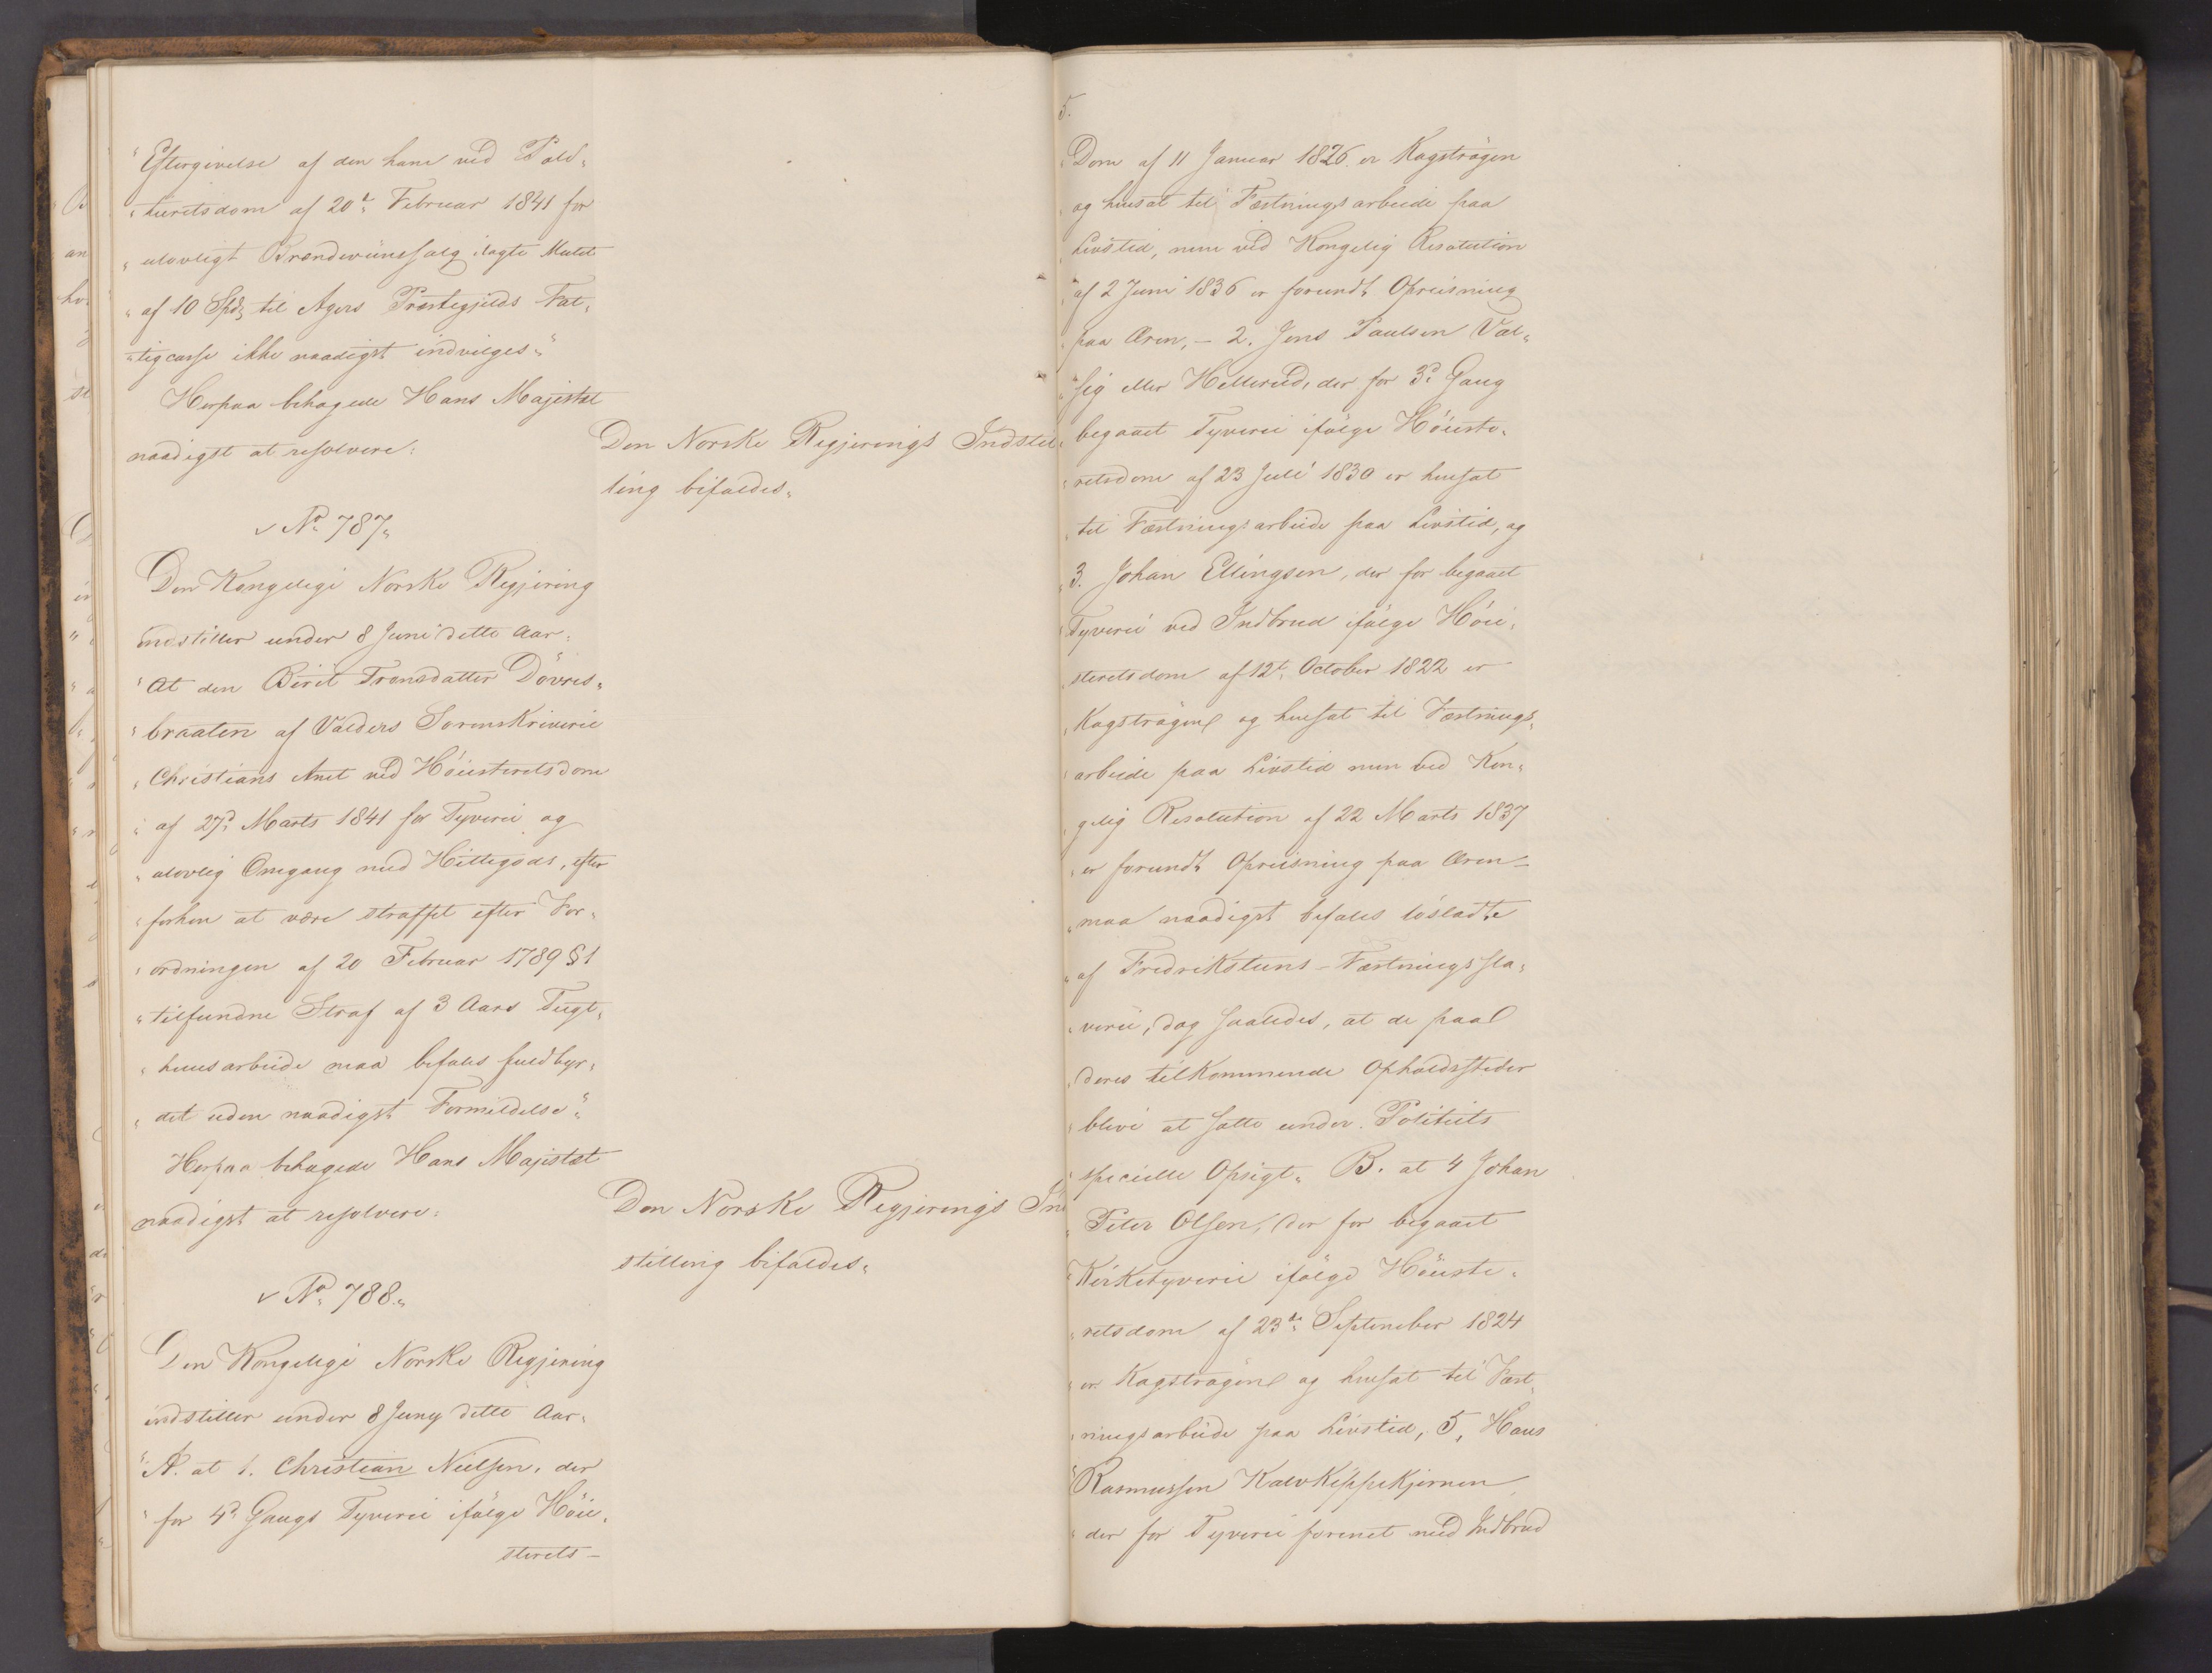 "Eftergivelse af den ham ved Pold„
„titretsdom af 20de Februar 1841 for
„ulovligt Brændeviinssalg ilagte Mulct
„af 10 Spd. til Agers Præstegjelds Fat„
„tigcasse ikke naadigst indvilges."
Herpaa behagede Hans Majestæt
naadigst at resolvere:
Den Norske Regjerings Indstil„
ling bifaldes.
✓ No. 787.
Den Kongelige Norske Regjering
indstiller under 8 Juni dette Aar:
"At den Birit Tronsdatter Dövres„
„braaten af Valders Sorenskriverie
„Christians Amt ved Höiesteretsdom
„af 27d. Marts 1841 for Tyverie og
„ulovlig Omgang med Hittegods, efter
„forhen at være straffet efter For„
„ordningen af 20 Februar 1789 § 1
„tilfundne Straf af 3 Aars Tugt„
„huusarbeide maa befales fuldbyr„
„det uden naadigst Formildelse."
Herpaa behagede Hans Majestæt
naadigst at resolvere:
Den Norske Regjerings Ind
stilling bifaldes.
✓ No. 788.
Den Kongelige Norske Regjering
indstiller under 8 Juny dette Aar:
"A. at 1. Christian Nielsen, der
„for 4d. Gangs Tyverie ifölge Höie„
sterets-
5.
„Dom af 11 Januar 1826 er Kagströgen
„og hensat til Fæstningsarbeide paa
„Livstid, men ved Kongelig Resolution
„af 2 Juni 1836 er forundt Opreisning
„paa Æren, - 2. Jens Paulsen Val„
„sig eller Hellerud, der for 3d. Gang
„begaaet Tyverie ifölge Höieste„
„retsdom af 23 Juli 1830 er hensat
„til Fæstningsarbeide paa Livstid, og
„3. Johan Ellingsen, der for begaaet
„Tyverie ved Indbrud ifölge Höie„
„steretsdom af 12t. October 1822 er
„Kagströgen og hensat til Fæstnings„
„arbeide paa Livstid men ved Kon„
„gelig Resolution af 22 Marts 1837
„er forundt Opreisning paa Æren -
„maa naadigst befales lösladte
„af Fredrikstens-Fæstningssla„
„verie, dog saaledes, at de paa
„deres tilkommende Opholdssteder
„blive at sætte under Politiets
„specielle Opsigt. B. at 4 Johan
„Peter Olsen, der for begaaet
„Kirketyverie ifölge Höieste„
„retsdom af 23de September 1824
„er Kagströgen og hensat til Fæst„
„ningsarbeide paa Livstid, 5, Hans
„Rasmussen Kalvkippekjernen
„der for Tyverie forenet med Indbrud